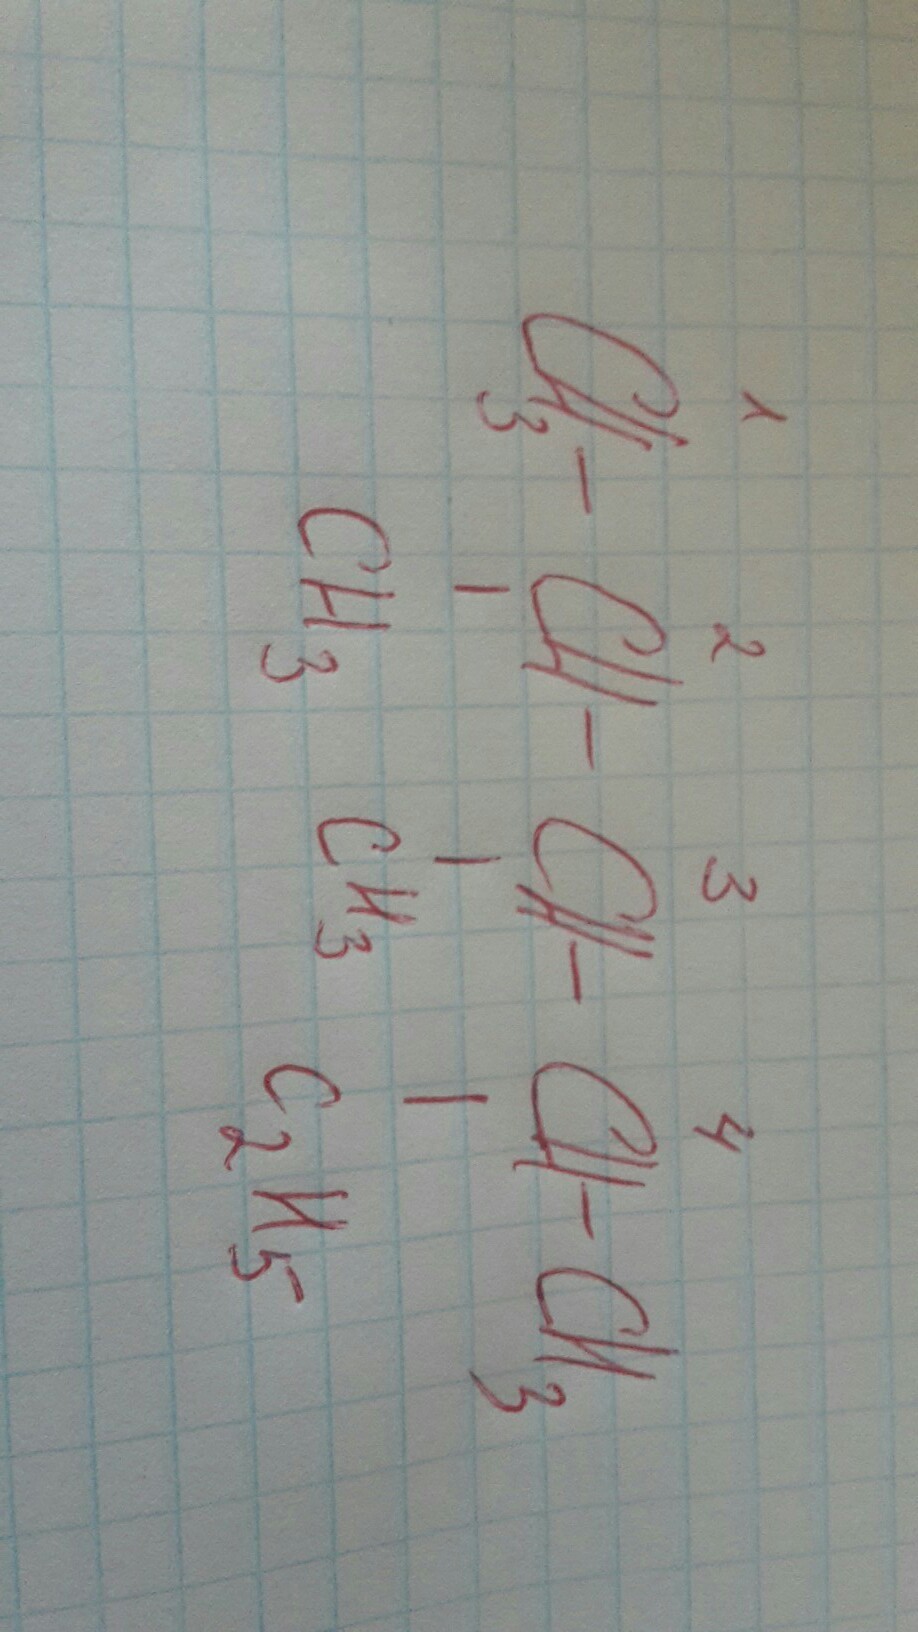 1 2 3 4
CH3 - CH - CH - CH - CH3
| | |
CH3 CH3 C2H5